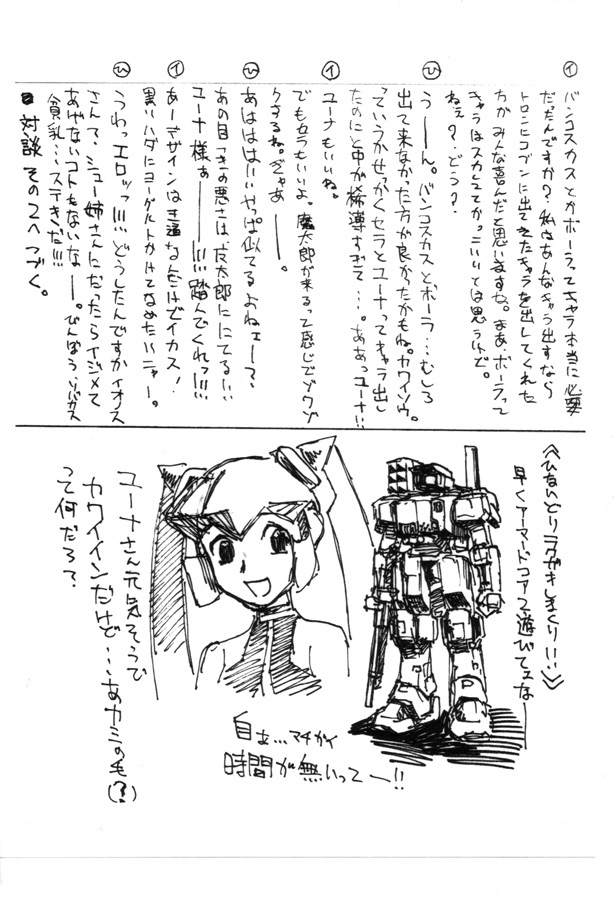 イ
バンコスカスとかポーラってキャラ本当に必要
だったんですか？私はあんなキャラ出すなら
トロンにコブンに出てきたキャラを出してくれた
方がみんな喜んだと思いますね。まあ、ポーラって
キャラはスカしててかっこいいとは思うけど。
ねぇ？・どう？・
ひ
うーん。バンコスカスとポーラ…むしろ
出て来なかった方が良かったかもね。カワイソウ。
っていうかせっかくセラとユーナってキャラ出し
たのにと中が稀薄すぎて…。ああっユーナ!!
イ
ユーナもいいね。
ひ
でもセラもいいよ。魔太郎が来るって感じでゾクゾ
クするね。ぎゃあーー。
イ
あははは!!いやっぱ似てるよねェー？・
あの目つきの悪さは、魔太郎ににてる!!!
ユーナ様ぁーー!!!!踏んでくれっ!!!!
イ
あーデザインはき道なんだけどイカス！・
黒いハダにヨーグルトかけてなめたいニャー。
ひ
うわっエロッッ!!!!どうしたんですかイオス
さんて、シュー姉さんにだったらイジメて
あげないコトもないなー。でんぼう
貧乳…ステキだ!!!
■対談その2へつづく。
≪ひないどりラクがきしまくり!!!≫
早くアーマードコア2遊びてェなー
ユーナさん元気そうで
カワイインだけど…あカミのモ(？)
って何だろ？
自由…マチガイ
時間が無いってー!!